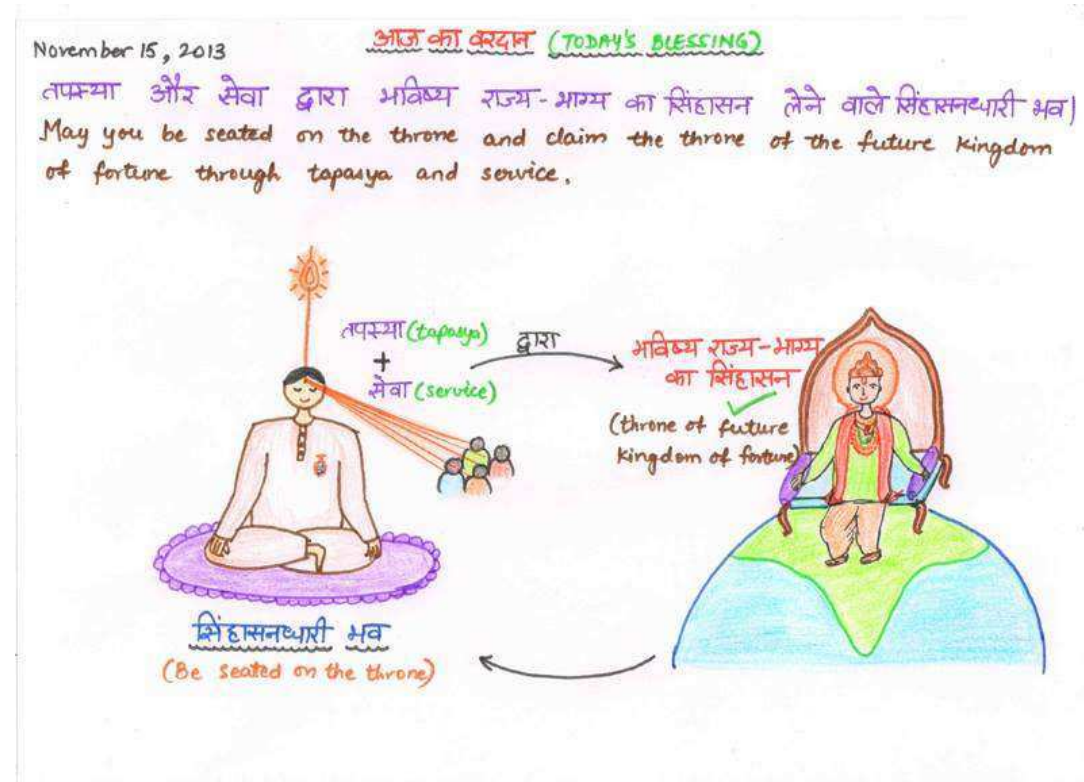 November 15, 2013
आज का वरदान (TODAY'S BLESSING)
तपस्या और सेवा द्वारा भविष्य राज्य-भाग्य का सिंहासन लेने वाले सिंहासनधारी भव|
May you be seated on the throne and claim the throne of the future kingdom
of fortune through tapasya and service.
तपस्या (tapasya)
+
सेवा (service)
द्वारा
भविष्य राज्य-भाग्य
का सिंहासन
(throne of future
kingdom of fortune)
सिंहासनधारी भव
(Be seated on the throne)